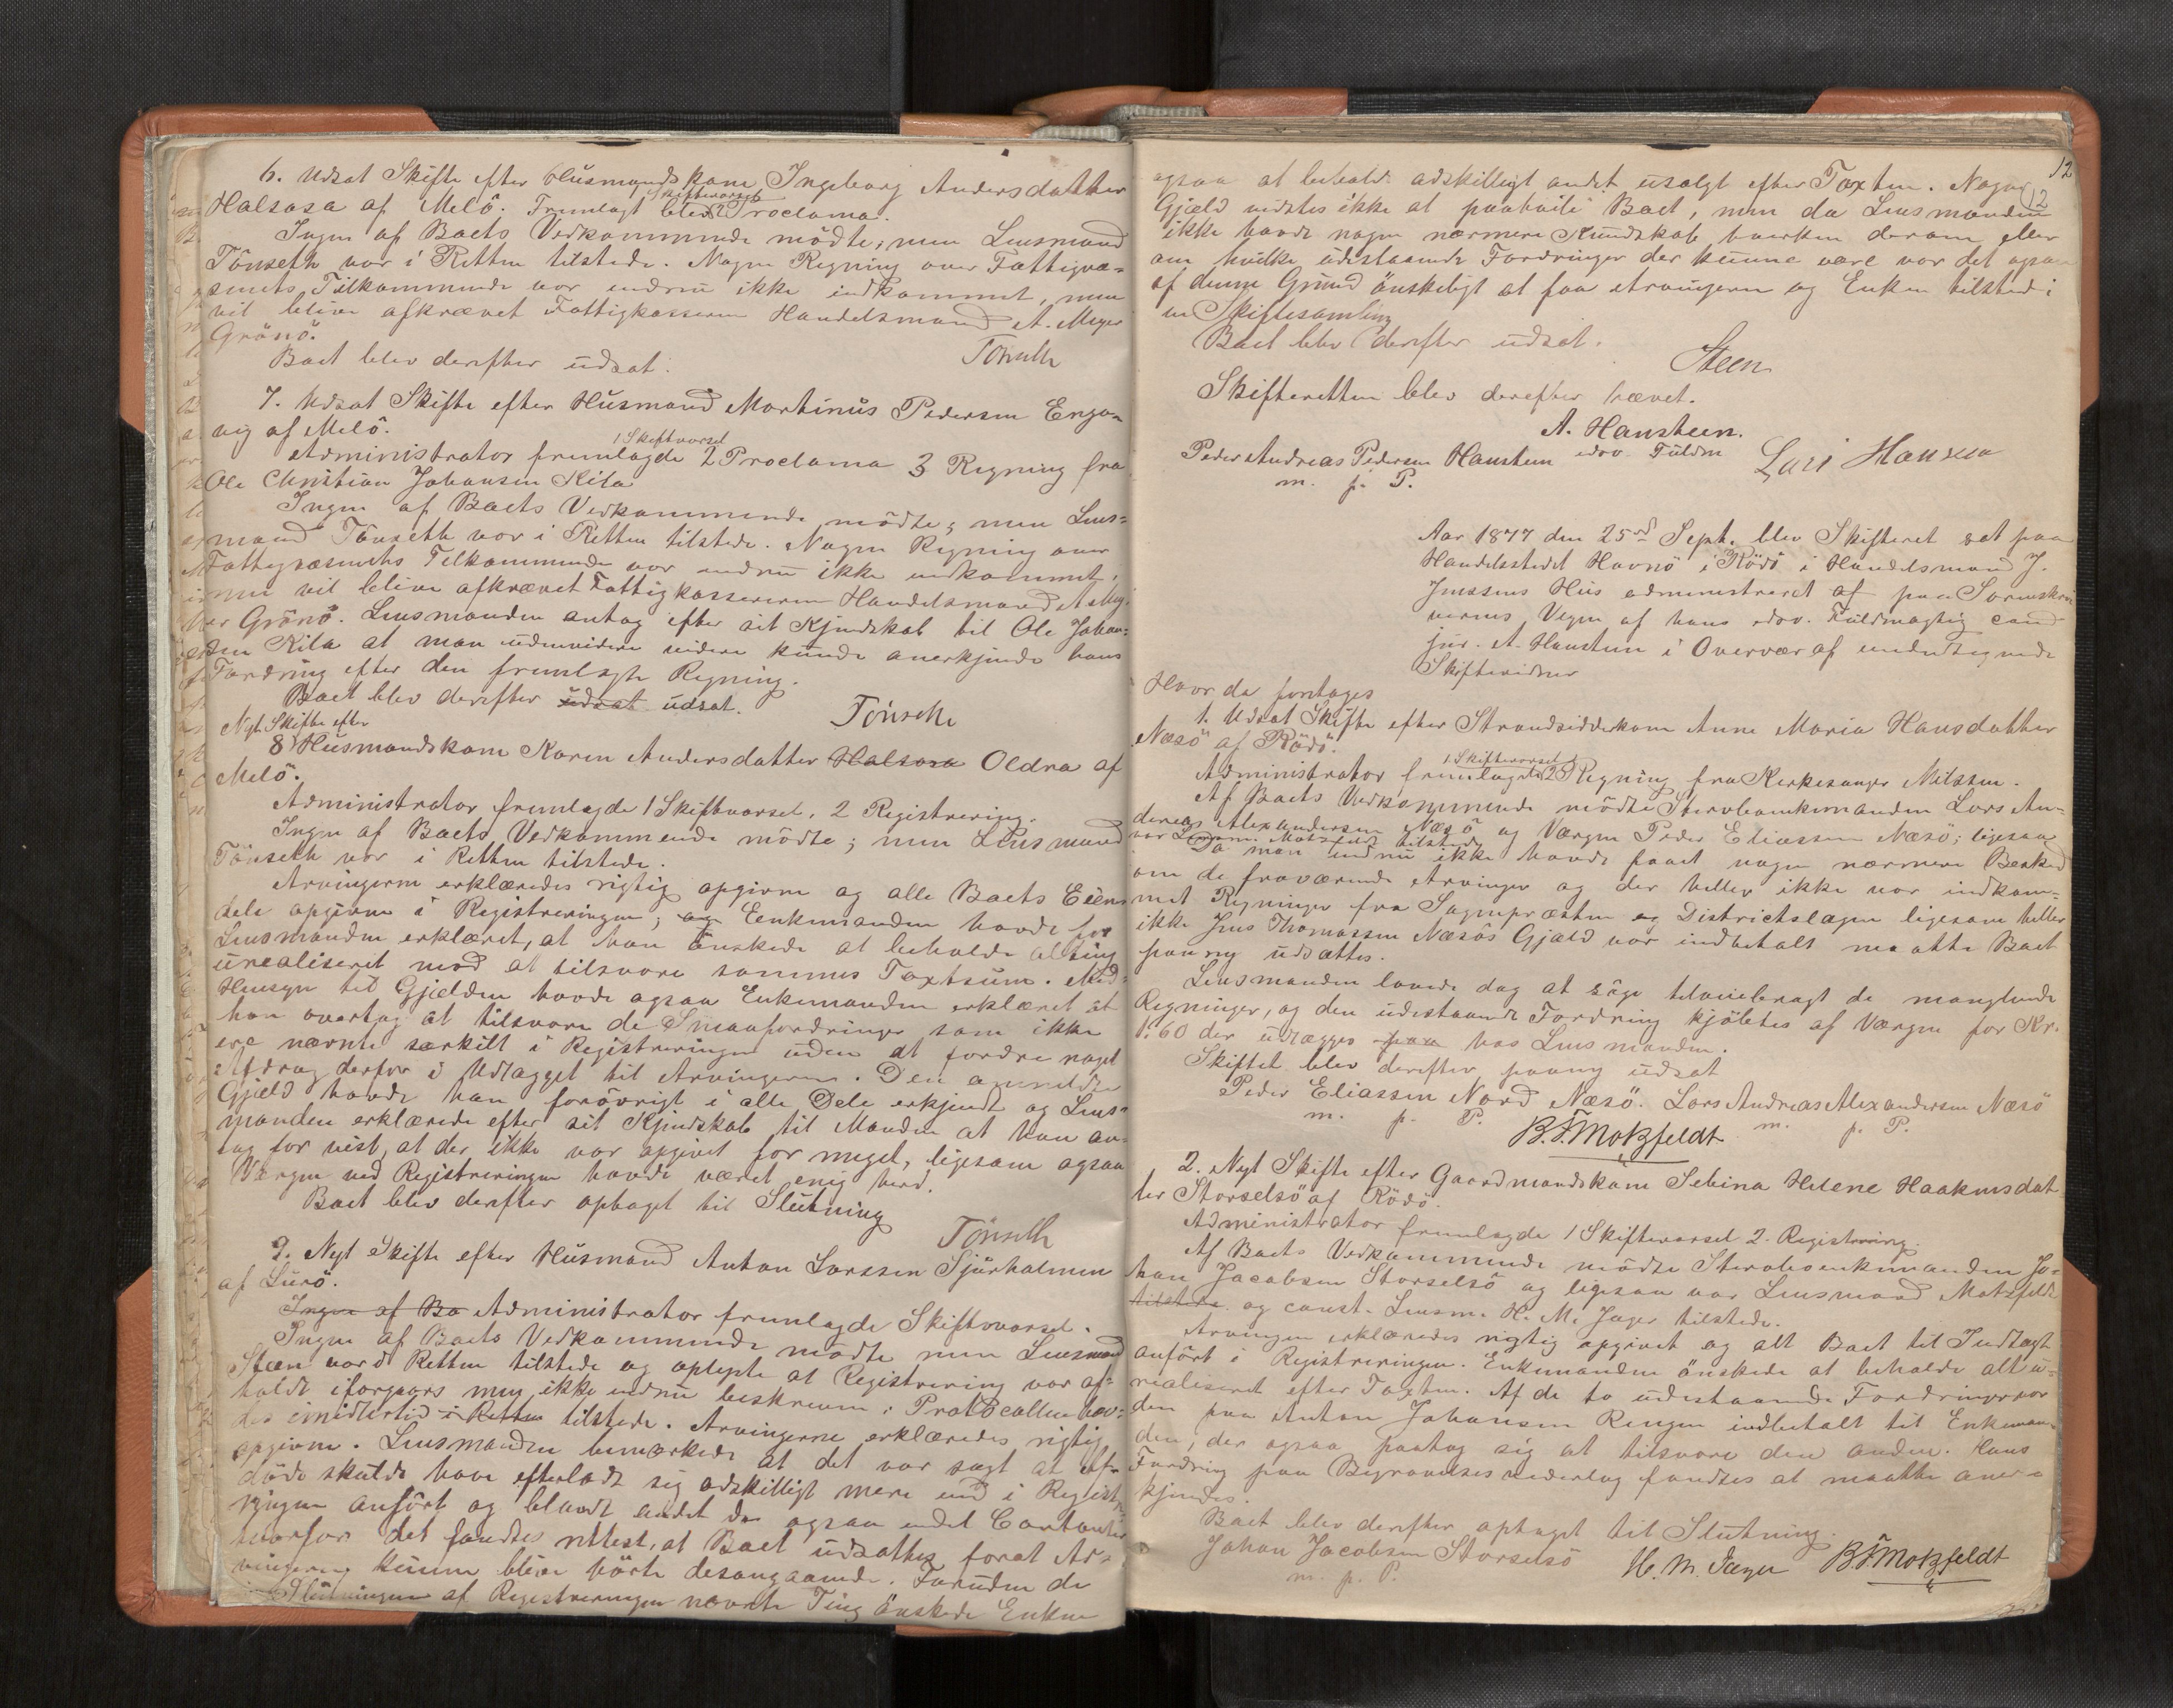 6. Udsat Skifte efter Husmandskone Ingeborg Andersdatter
Halsosa af Melö. Fremlagt blev 1 Skiftevarsel 2 Proclama.
Ingen af Boets Vedkommende mödte, men Lensmand
Tönseth var i Retten tilstede. Nogen Regning over Fattigvæ-
senets Tilkommende var endnu ikke indkommet, men
vil blive afkrævet Fattigkasserer Handelsmand A. Meyer
Grönö.
Boet blev derefter udsat.
Tönseth
7. Udsat Skifte efter Husmand Martinus Pedersen Enga-
vig af Melö.
Administrator fremlagde 1 Skiftevarsel 2 Proclama 3 Regning fra
Ole Christian Johansen Kila
Ingen af Boets Vedkommende mödte; men Lens-
mand Tönseth var i Retten tilstede. Nogen Regning over
Fattigvæsenets Tilkommende var endnu ikke indkommet,
men vil blive afkrævet Fattigkassereren Handelsmand A Mey-
er Grönö. Lensmanden antog efter sit Kjendskab til Ole Johan-
sen Kila at man udenvidere kunde anerkjende hans
Fordring efter den fremlagte Regning.
Boet blev derefter udsat udsat.
Tönseth
Nyt Skifte efter
8) Husmandskone Karen Andersdatter Halsosa Oldra af
Melö.
Administrator fremlagde 1 Skiftevarsel, 2 Registrering.
Ingen af Boets Vedkommende mödte; men Lensmand
Tönseth var i Retten tilstede.
Arvingerne erklæredes rigtig opgivne og alle Boets Eien-
dele opgivne i Registreringen; og Enkemanden havde for
Lensmanden erklæret, at han önskede at beholde alting
urealiseret mod at tilsvare sammes Taxtsum. Med
Hensyn til Gjælden havde ogsaa Enkemanden erklæret at
han overtog at tilsvare de Smaafordringer som ikke
ere nævnte særkilt i Registreringen uden at fordre noget
Afdrag derfor i Udlægget til Arvingerne. Den anmeldte
Gjæld havde han forövrigt i alle Dele erkjendt og Lens-
manden erklærede efter sit Kjendskab til Manden at han an-
tog for vist, at der ikke var opgivet for meget, ligesom ogsaa
Værgen ved Registreringen havde været enig heri.
Boet blev derefter optaget til Slutning
Tönseth
9. Nyt Skifte efter Husmand Anton Larssen Sjurholmen
af Lurö.
Ingen af Bo Administrator fremlagde Skiftevarsel.
Ingen af Boets Vedkommende mödte men Lensmand
Steen var i Retten tilstede og oplyste at Registrering var af-
holdt iforgaars men ikke endnu beskreven; Protocollen hav-
des imidlertid i Retten tilstede. Arvingerne erklæredes rigtig
opgivne. Lensmanden bemærkede at det var sagt at af-
döde skulde have efterladt sig adskilligt mere end i Regist-
ringen anfört og blandt andet da ogsaa endel Contanter
hvorfor det fandtes rettest, at Boet udsattes forat Ar-
vingerne kunne blive hörte desangaaende. Foruden de
i Slutningen af Registreringen nævnte Ting önskede Enken
12
12
ogsaa at beholde adskilligt andet usolgt efter Taxten. Nogen
Gjæld vidstes ikke at paahvile Boet, men da Lensmanden
ikke havde nogen nærmere Kundskab hverken derom eller
om hvilke udestaaende Fordringer der kunne være var det ogsaa
af denne Grund önskeligt at faa Arvingerne og Enken tilstede i
en Skiftesamling
Boet blev derefter udsat.
Steen
Skifteretten blev derefter hævet.
A. Hansteen.
edsv. Fuldm
Peder Andreas Pedersen Haustein
m. p. P.
Lars Hansen
Aar 1877 den 25de Sept. blev Skifteret sat paa
Handelsstedet Havnö i Rödö i Handelsmand J.
Jenssens Hus administreret af paa Sorenskri-
verens Vegne af hans edsv. Fuldmægtig cand
jur. A. Hansteen i Overvær af undertegnede
Skiftevidner
Hvor da foretages
1. Udsat Skifte efter Strandsidderkone Anne Maria Hansdatter
Næsö af Rödö.
Administrator fremlagde 1 Skiftevarsel 2 Regning fra Kirkesanger Nilssen.
Af Boets Vedkommende mödte Stervboenkemanden Lars An-
dreas Alexandersen Næsö og Værgen Peder Eliassen Næsö; ligesaa
var Lensm Motzfeldt tilstede
Da man endnu ikke havde faaet nogen nærmere Besked
om de fraværende Arvinger og der heller ikke var indkom-
met Regninger fra Sognepræsten og Districtslægen ligesom heller
ikke Jens Thomassen Næsös Gjæld var indbetalt maatte Boet
paany udsættes.
Lensmanden lovede dog at söge tilveiebragt de manglende
Regninger, og den udestaaende Fordring kjöbtes af Værgen for Kr.
1.60 der udlægges paa hos Lensmanden.
Skiftet blev derefter paany udsat
Peder Eliassen Nord Næsö. Lars Andreas Alexandersen Næsö
m. p. P. m. p. P.
B. F. Motzfeldt
2. Nyt Skifte efter Gaardmandskone Sebina Helene Haakensdat-
ter Storselsö af Rödö.
Administrator fremlagde 1 Skiftevarsel 2. Registrering.
Af Boets Vedkommende mödte Stervboenkemanden Jo-
han Jacobsen Storselsö og ligesaa var Lensmand Motzfeldt
tilstede og const. Lensm. H. M. Jæger tilstede.
Arvingen erklæredes rigtig opgivet og alt Boet til Indtægt
anfört i Registreringen. Enkemanden önskede at beholde alt u-
realiseret efter Taxten. Af de to udestaaende Fordringer var
den paa Anton Johansen Rengen indbetalt til Enkeman-
den, der ogsaa paatog sig at tilsvare den anden. Hans
Fordring paa Begravelsesvederlag fandtes at maatte aner-
kjendes.
Boet blev derefter optaget til Slutning.
Johan Jacobsen Storselsö
m. p. P.
H. M. Jæger B. F. Motzfeldt